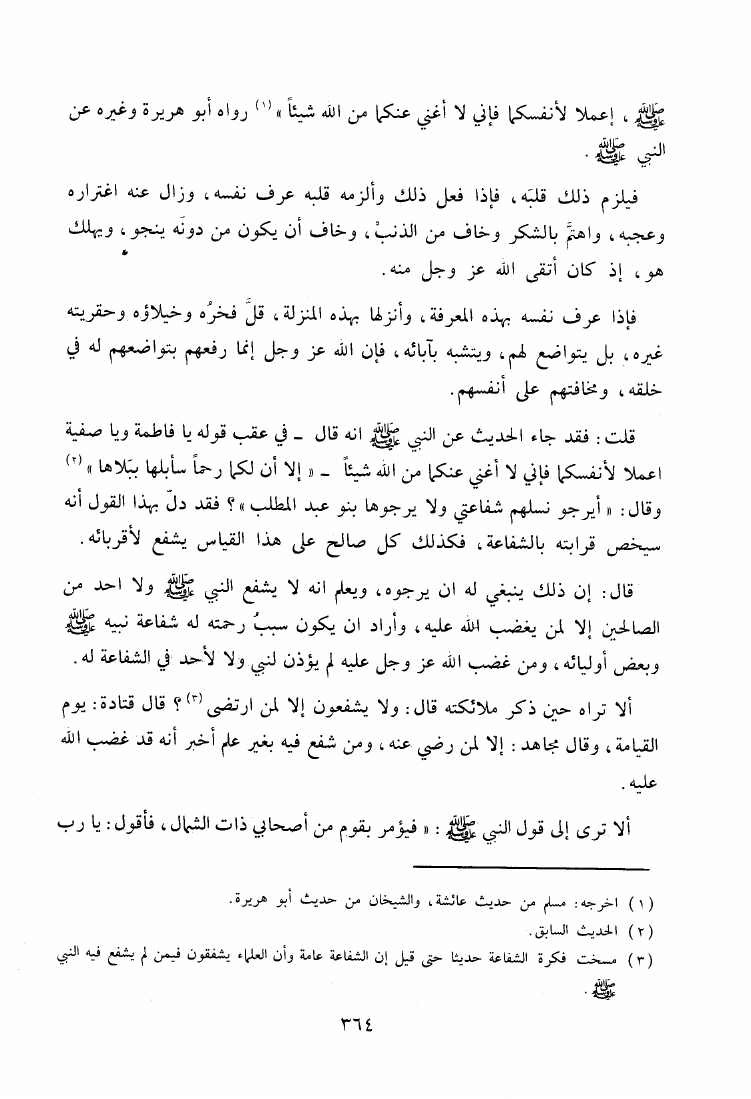 ﷺ ، إعملا لأنفسكما فإني لا أغني عنكما من الله شيئاً »(١) رواه أبو هريرة وغيره عن
النبي ﷺ .
فيلزم ذلك قلبَه ، فإذا فعل ذلك وألزمه قلبه عرف نفسه ، وزال عنه اغتراره
وعجبه ، واهتمَّ بالشكر وخاف من الذنبْ ، وخاف أن يكون من دونَه ينجو ، ويهلك
هو ، إذ كان أتقى الله عز وجل منه .
فإذا عرف نفسه بهذه المعرفة ، وأنزلها بهذه المنزلة ، قلَّ فخرُه وخيلاؤه وحقريته
غيره ، بل يتواضع لهم ، ويتشبه بآبائه ، فإن الله عز وجل إنما رفعهم بتواضعهم له في
خلقه ، ومخافتهم على أنفسهم .
قلت : فقد جاء الحديث عن النبي ﷺ انه قال ـ في عقب قوله يا فاطمة ويا صفية
اعملا لأنفسكما فإني لا أغني عنكما من الله شيئاً ـ « إلا أن لكما رحماً سأبلها ببَلاها »(٢)
وقال : « أيرجو نسلهم شفاعتي ولا يرجوها بنو عبد المطلب » ؟ فقد دلّ بهذا القول أنه
سيخص قرابته بالشفاعة ، فكذلك كل صالح على هذا القياس يشفع لأقربائه .
قال : إن ذلك ينبغي له ان يرجوه ، ويعلم انه لا يشفع النبي ﷺ ولا احد من
الصالحين إلا لمن يغضب الله عليه ، وأراد ان يكون سببُ رحمته له شفاعة نبيه ﷺ
وبعض أوليائه ، ومن غضب الله عز وجل عليه لم يؤذن لنبي ولا لأحد في الشفاعة له .
ألا تراه حين ذكر ملائكته قال : ولا يشفعون إلا لمن ارتضى(٣) ؟ قال قتادة : يوم
القيامة ، وقال مجاهد : إلا لمن رضي عنه ، ومن شفع فيه بغير علم أخبر أنه قد غضب الله
عليه .
ألا ترى إلى قول النبي ﷺ : « فيؤمر بقوم من أصحابي ذات الشمال ، فأقول : يا رب
(١) اخرجه : مسلم من حديث عائشة ، والشيخان من حديث أبو هريرة .
(٢) الحديث السابق .
(٣) مسخت فكرة الشفاعة حديثا حتى قيل إن الشفاعة عامة وأن العلماء يشفقون فيمن لم يشفع فيه النبي
ﷺ .
٣٦٤